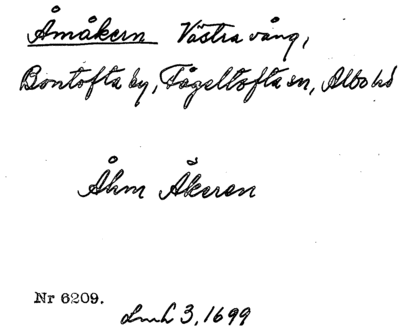 Åmåkern Västra vång,
Bontofta by, Fågeltofta sn, Albo hd
Åhm Åkeren
Nr 6209.
LmL 3, 1699